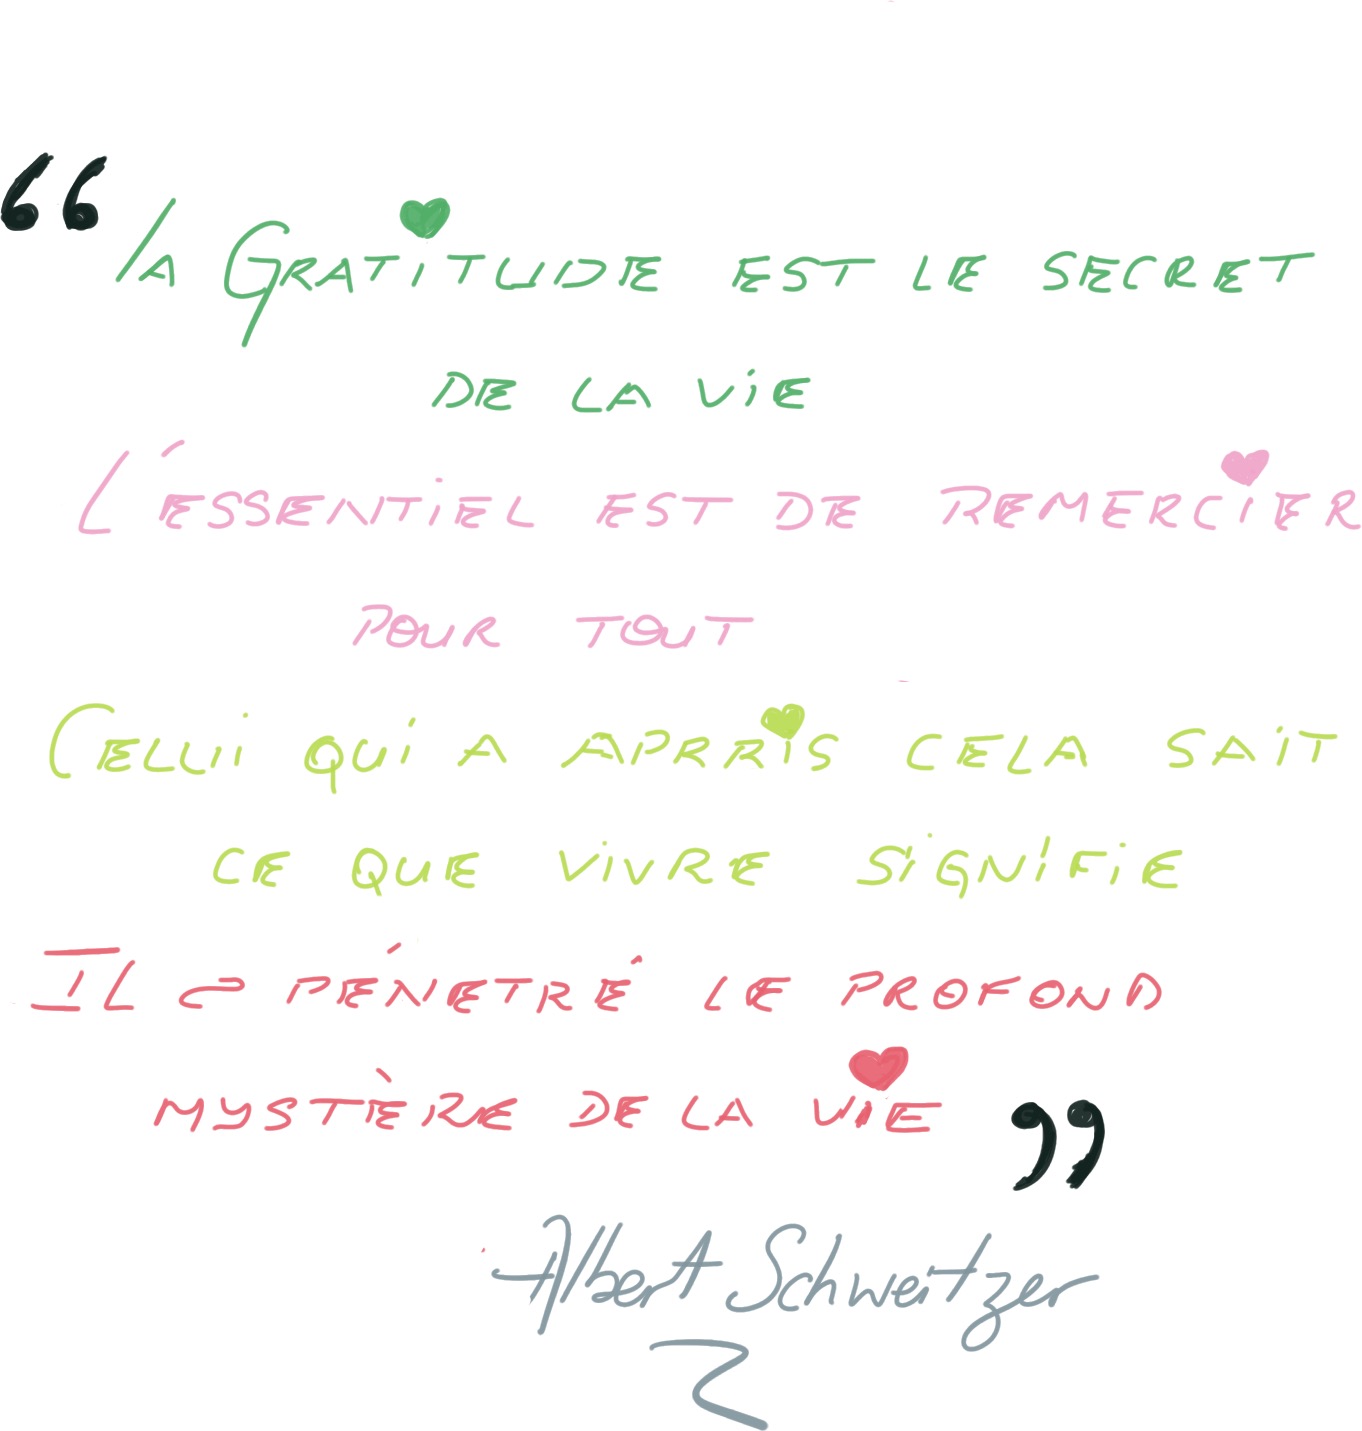 “ LA GRATiTUDE EST LE SECRET
DE LA ViE
L'ESSENTiEL EST DE REMERCiER
POUR TOUT
CELUi QUi A APRRiS CELA SAiT
CE QUE ViVRE SiGNiFiE
IL PÉNETRÉ LE PROFOND
MYSTÈRE DE LA ViE ”
Albert Schweitzer